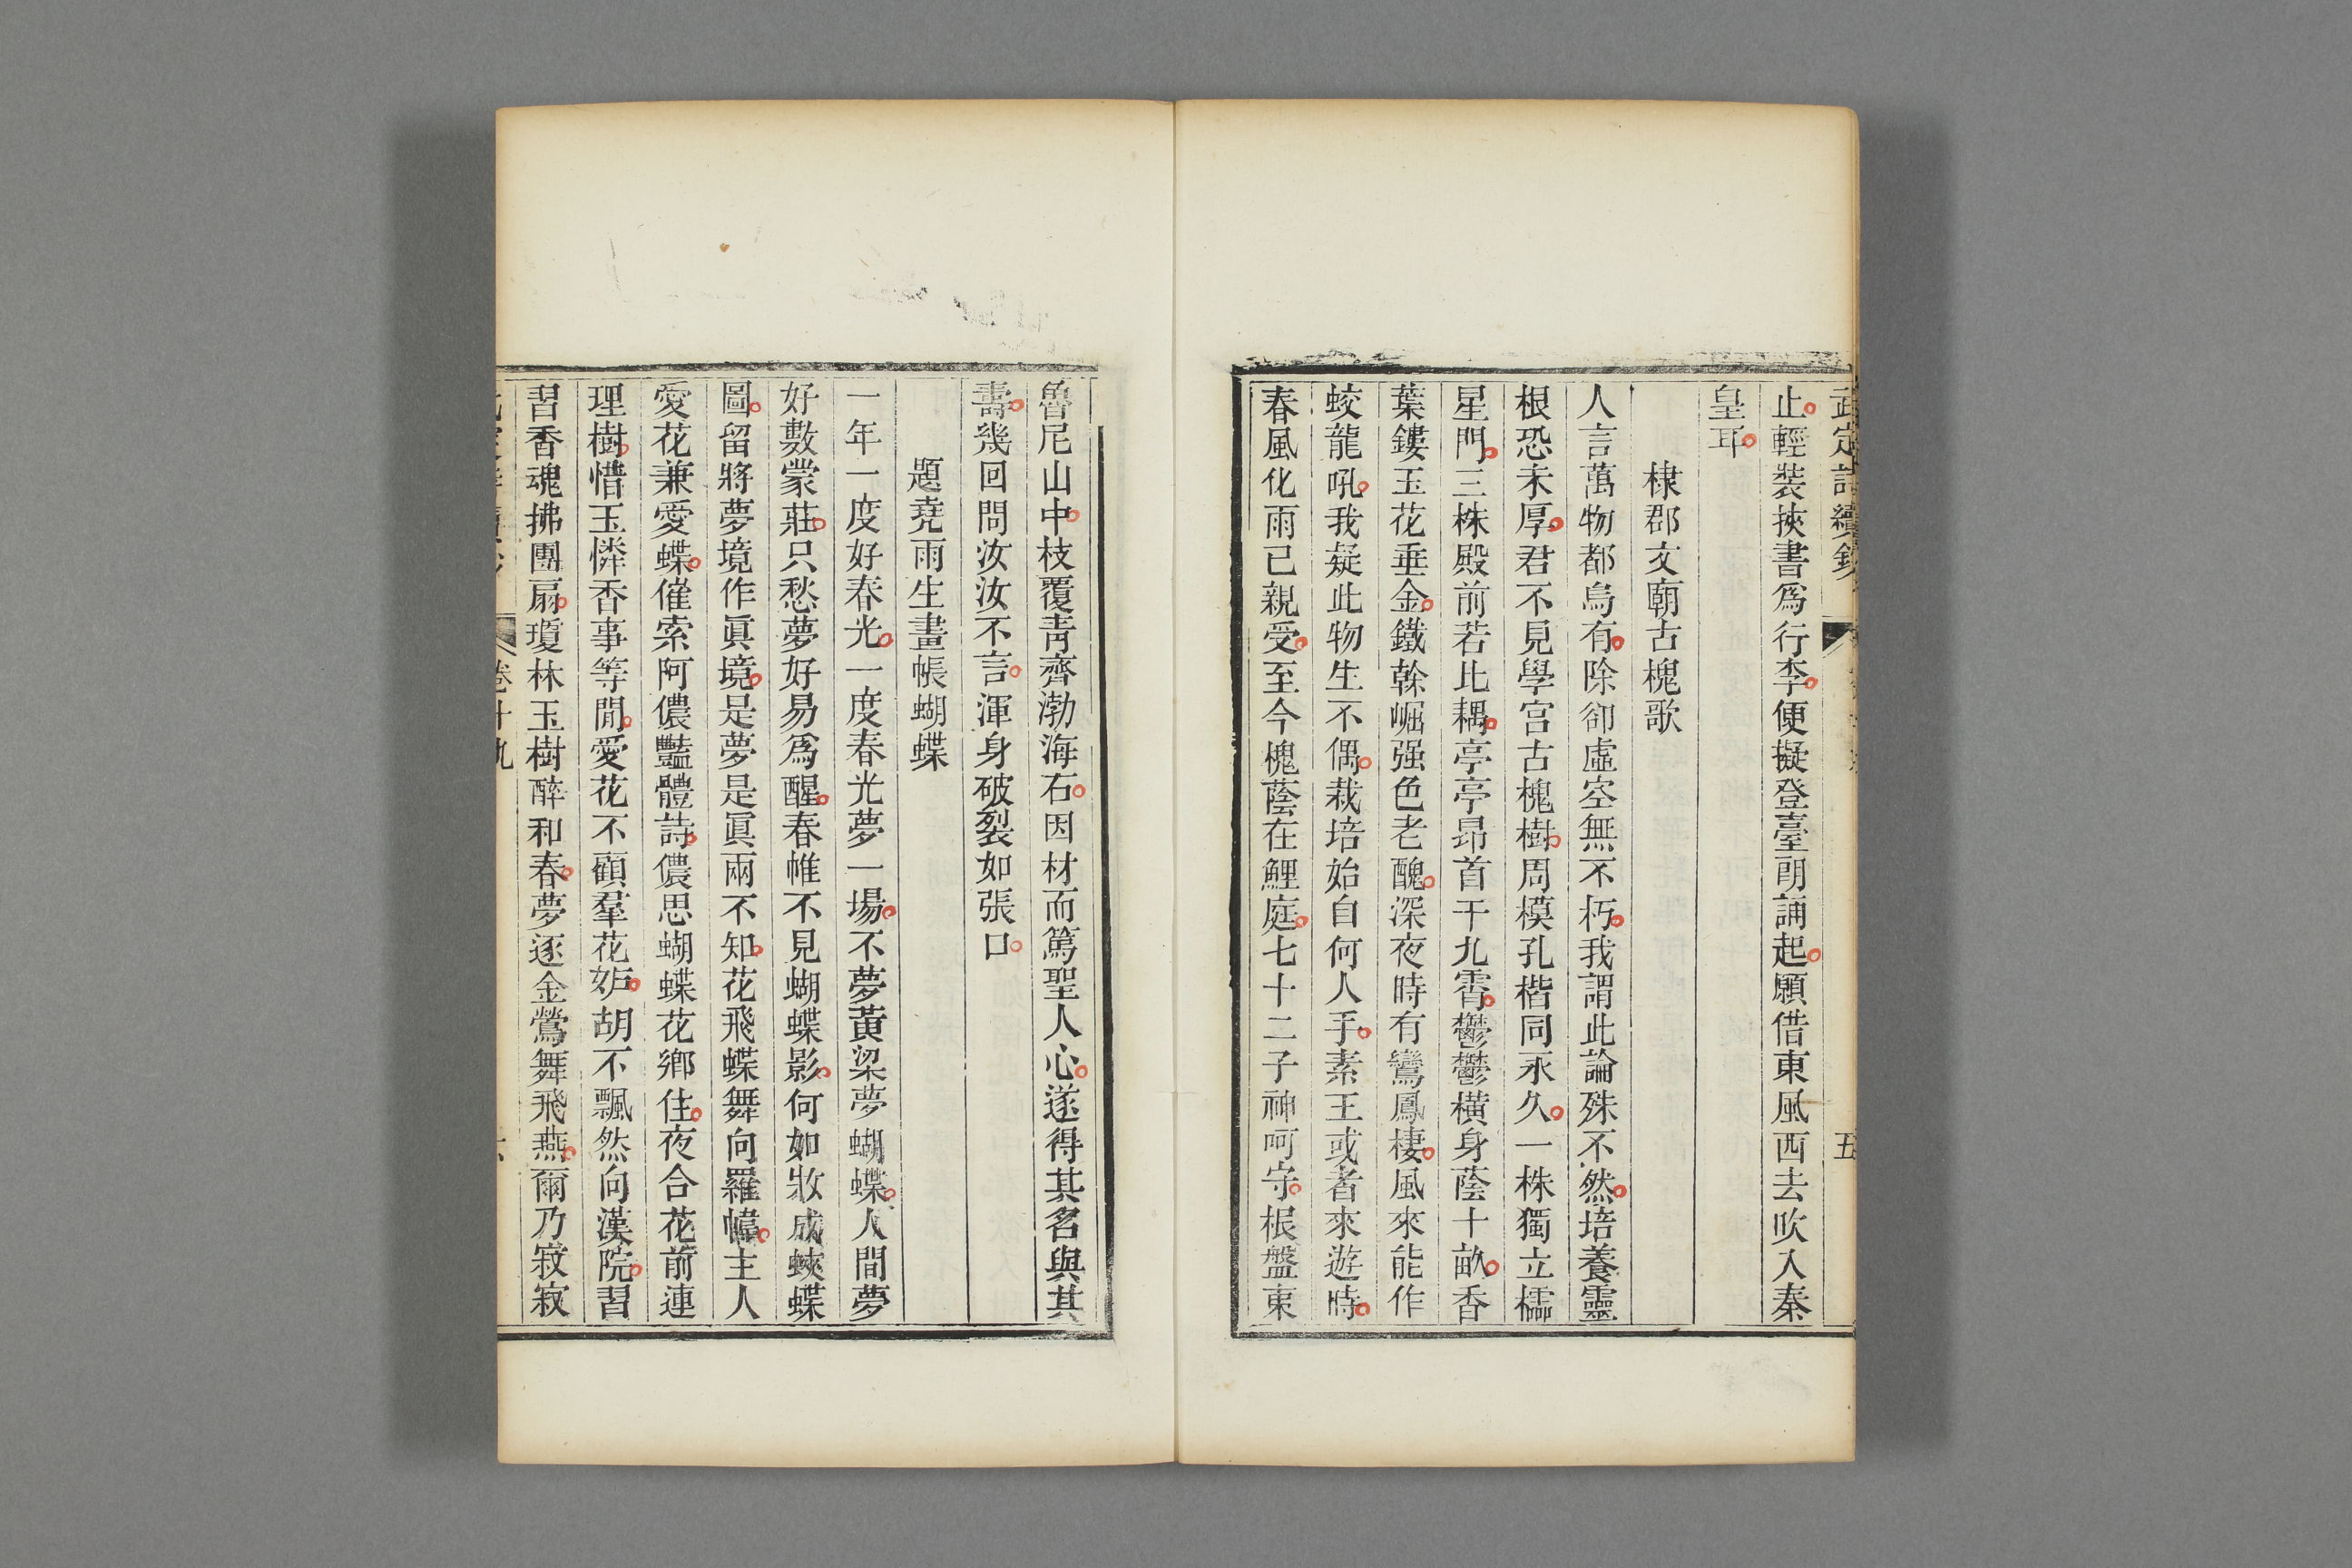 武定詩續鈔
五
止輕裝挾書爲行李便擬登臺朗誦起願借東風西去吹入秦
皇耳
棣郡文廟古槐歌
人言萬物都烏有除卻虛空無不朽我謂此論殊不然培養靈
根恐未厚君不見學宮古槐樹周模孔楷同永久一株獨立櫺
星門三株殿前若比耦亭亭昂首干九霄鬱鬱橫身蔭十畝香
葉鏤玉花垂金鐵榦崛强色老醜深夜時有鸞鳳棲風來能作
蛟龍吼我疑此物生不偶栽培始自何人手素王或者來遊時
春風化雨已親受至今槐蔭在鯉庭七十二子神呵守根盤東
魯尼山中枝覆靑齊渤海右因材而篤聖人心遂得其名與其
壽幾回問汝汝不言渾身破裂如張口
題堯雨生畫帳蝴蝶
一年一度好春光一度春光夢一場不夢黃梁夢蝴蝶人間夢
好數蒙莊只愁夢好易爲醒春帷不見蝴蝶影何如妝成蛺蝶
圖留將夢境作眞境是夢是眞兩不知花飛蝶舞向羅幃主人
愛花兼愛蝶催索阿儂豔體詩儂思蝴蝶花鄉住夜合花前連
理樹惜玉憐香事等閒愛花不顧羣花妒胡不飄然向漢院習
習香魂拂團扇瓊林玉樹醉和春夢逐金鶯舞飛燕爾乃寂寂
卷十九